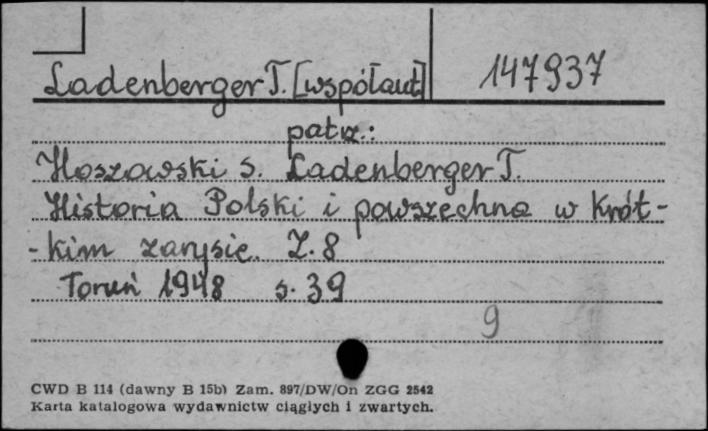 Ladenberger T. [współaut] 147937
patrz.:
Hoszowski S. Ladenberger T.
Historia Polski i powszechna w krót-
-kim zarysie. Z. 8
Toruń 1948 s. 39
9
CWD B 114 (dawny B 15b) Zam. 897/DW/On ZGG 2542
Karta katalogowa wydawnictw ciągłych i zwartych.